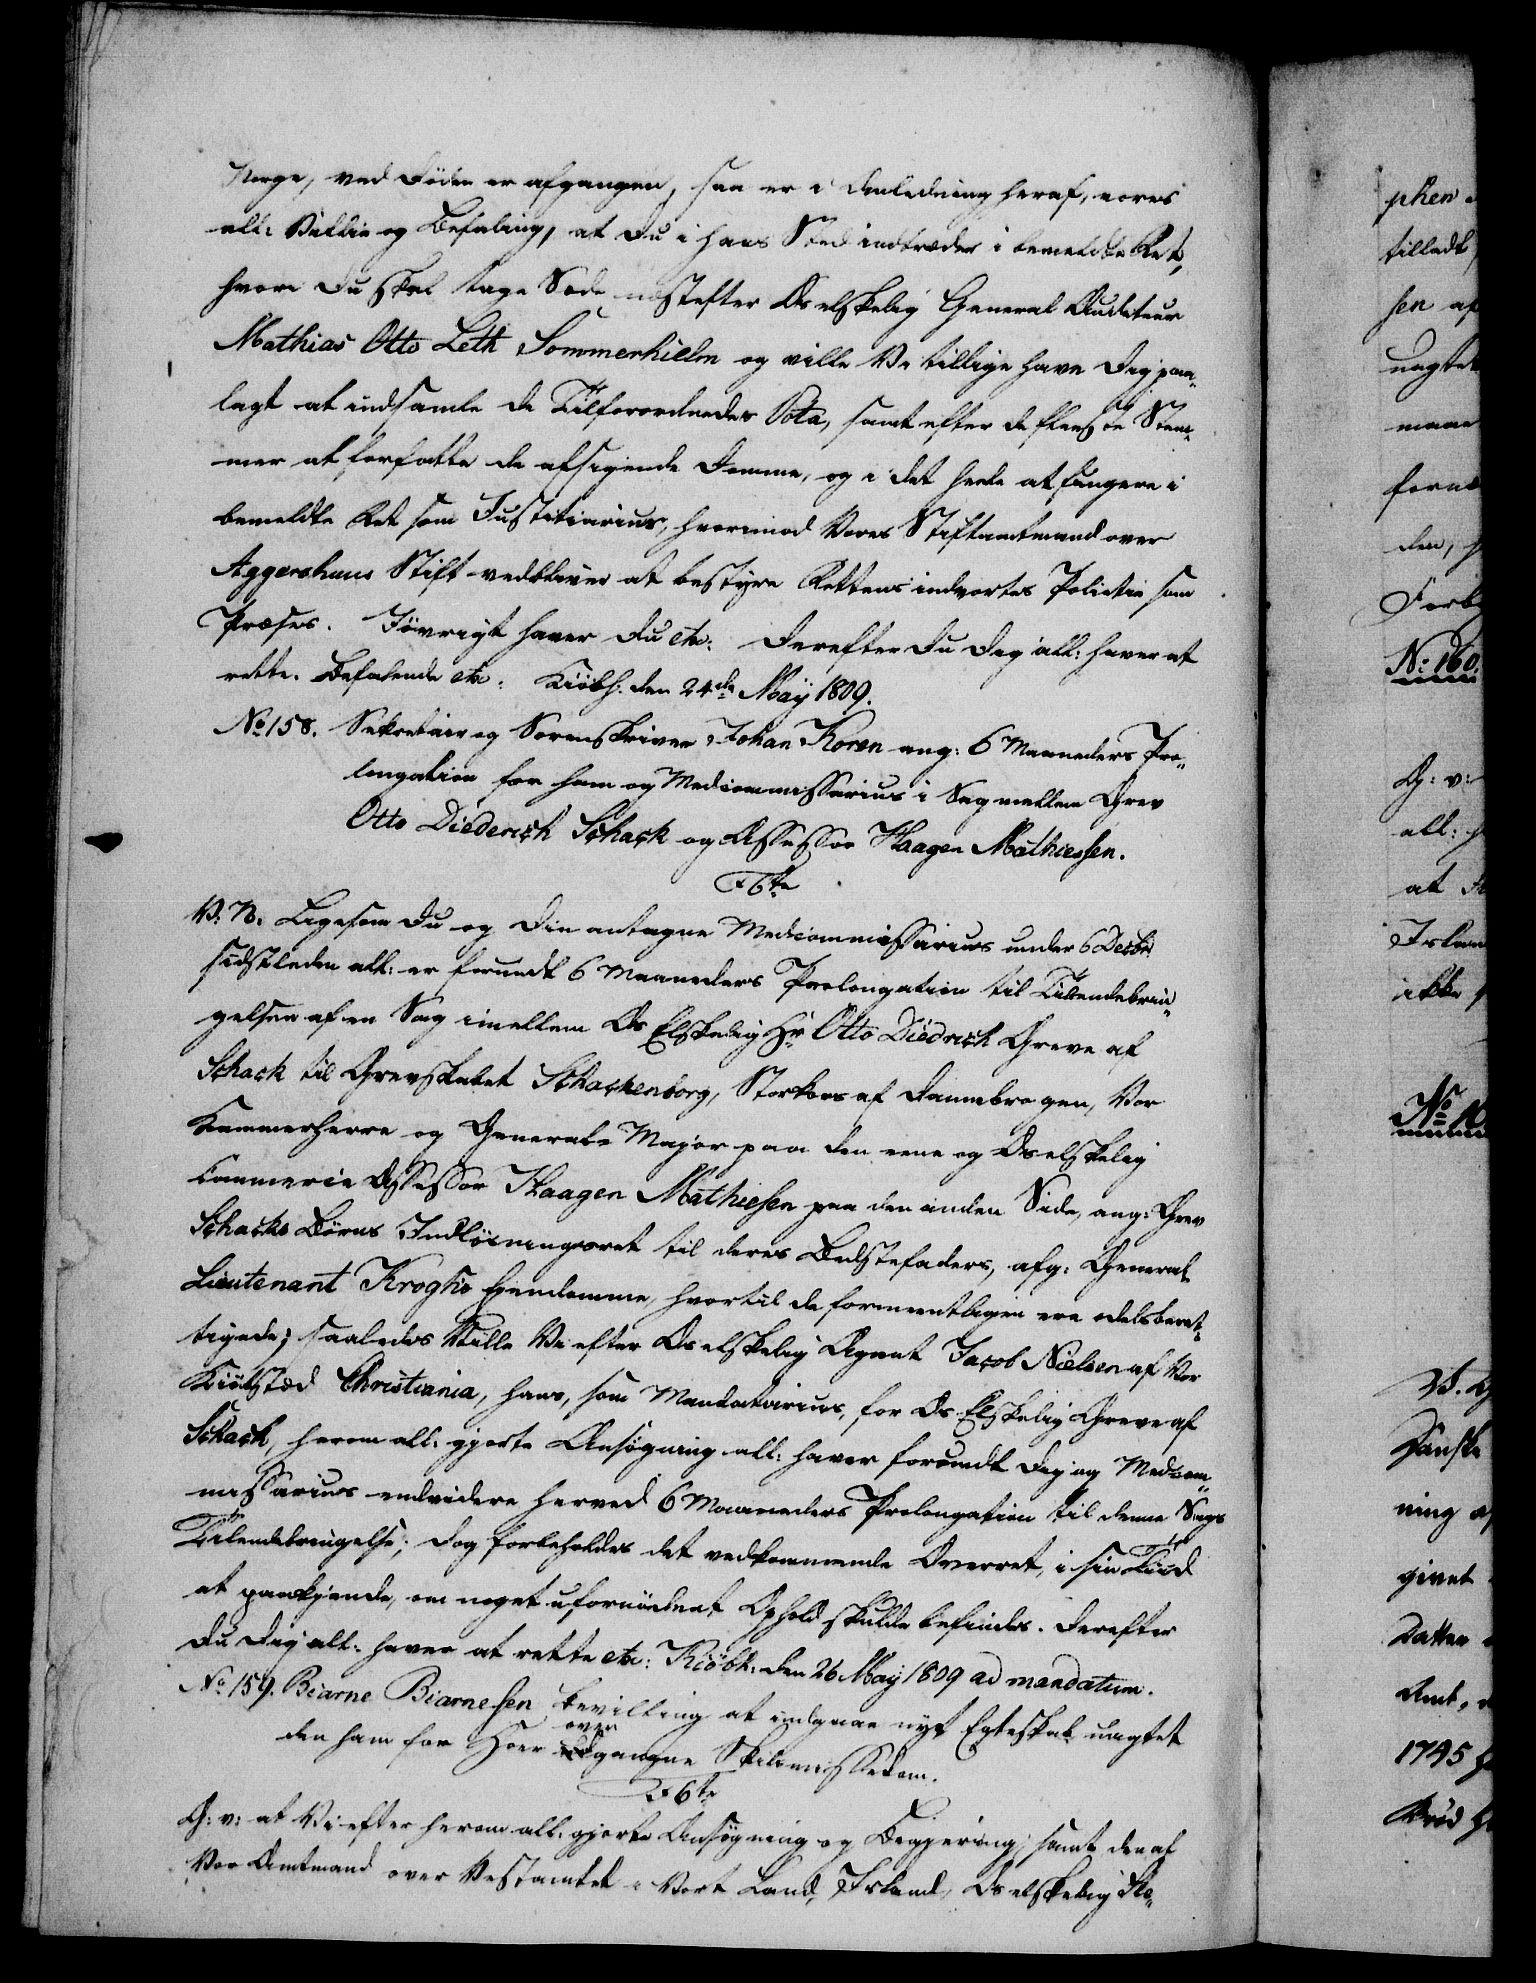 Norge, ved Døden er afgangen, saa er i Anledning heraf, vores
all: Villie og Befaling, at Du i hans Sted indtræder i bemeldte Ret,
hvori Du skal tage Sæde næstefter Os elskelig General Auditeur
Mathias Otto Leth Sommerhielm og ville Vi tillige have Dig paa„
lagt at indsamle de Tilforordnedes Vota, samt efter de fleeste Stem„
mer at forfatte de afsigende Domme, og i det hele at fungere i
bemeldte Ret som Justitiarius, hvorimod Vores Stiftamtmand over
Aggershuus Stift vedbliver at bestyre Rettens indvortes Politie som
Præses. Iøvrigt haver Du etc: Derefter Du Dig all: haver at
rette. Befalende etc: Kiøbh: den 24de May 1809.
No 158. Sekretair og Sorenskriver Johan Koren ang: 6 Maaneders Pro„
longation for ham og Medcommissarius i Sag mellem Grev
Otto Diederich Schack og Assessor Haagen Mathiessen.
F 6te
V. N. Ligesom Du og Din antagne Medcommissarius under 6 Decbr
sidstleden all: er forundt 6 Maaneders Prolongation til Tilendebrin„
gelsen af en Sag imellem Os Elskelig Hr Otto Diedrich Greve af
Schack til Grevskabet Schackenborg, Storkors af Dannebrogen, Vor
Kammerherre og General-Major paa den eene og Os elskelig
Cammerie Assessor Haagen Mathiesen paa den anden Side, ang: Grev
Schacks Børns Indløsningsret til deres Bedstefaders, afg: General
Lieutenant Kroghs Eiendomme, hvortil de formeentligen ere odelsberet„
tigede; saaledes Ville Vi efter Os elskelig Agent Jacob Nielsen af Vor
Kiøbstæd Christiania, hans, som Mandatarius, for Os Elskelig Greve af
Schack, herom all: gjorte Ansøgning all: haver forundt Dig og Medcom„
missarius endvidere herved 6 Maaneders Prolongation til denne Sags
Tilendebringelse; dog forbeholdes det vedkommende Overret, i sin Tiid
at paakjende, om noget ufornødent Ophold skulde befindes. Derefter
Du Dig all: haver at rette etc: Kiøbh: den 26 May 1809 ad mandatum.
No 159. Biarne Biarnesen Bevilling at indgaae nyt Egteskab uagtet
den ham for Hoer overgangne Skilsmissedom.
F 6te
G: v: at Vi efter herom all: gjorte Ansøgning og Begjering, samt den af
Vor Amtmand over Vestamtet i Vort Land, Island, Os elskelig Ste„
phen
tilladt
sen af
uagtet
maae
No 160.
G: v:
all:
at
Islan
ikke
No 16
V. G
Danske
ning af
givet
Datter
Amt,
1795